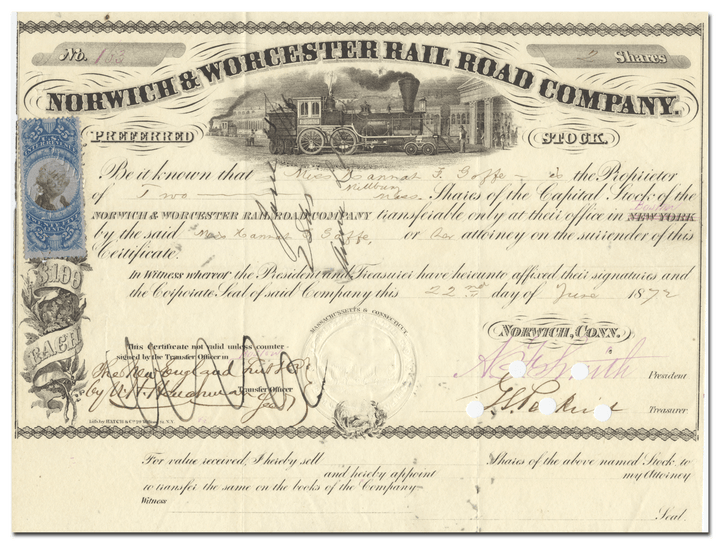 No. 2 Shares
NORWICH & WORCESTER RAIL ROAD COMPANY.
PREFERRED STOCK.
25 25
Be it known that Miss Hannah F. Goffe is the Proprietor
Millbury Mass
of Two Shares of the Capital Stock of the
Boston
NORWICH & WORCESTER RAIL ROAD COMPANY transferable only at their office in NEW YORK
by the said Miss Hannah F. Goffe, or her attorney on the surrender of this
Certificate.
In Witness whereof the President and Treasurer have hereunto affixed their signatures and
the Corporate Seal of said Company this 22nd day of June 1872
$100
EACH
MASSACHUSETTS & CONNECTICUT
NORWICH, CONN.
This Certificate not valid unless counter-
signed by the Transfer Officer in Boston
The New England Trust Co
by Transfer Officer
Smith President
G. L. Perkins Treasurer
Lith. by HATCH & Co. N.Y.
For value received, I hereby sell Shares of the above named Stock, to
and hereby appoint my Attorney
to transfer the same on the books of the Company
Witness
Seal.